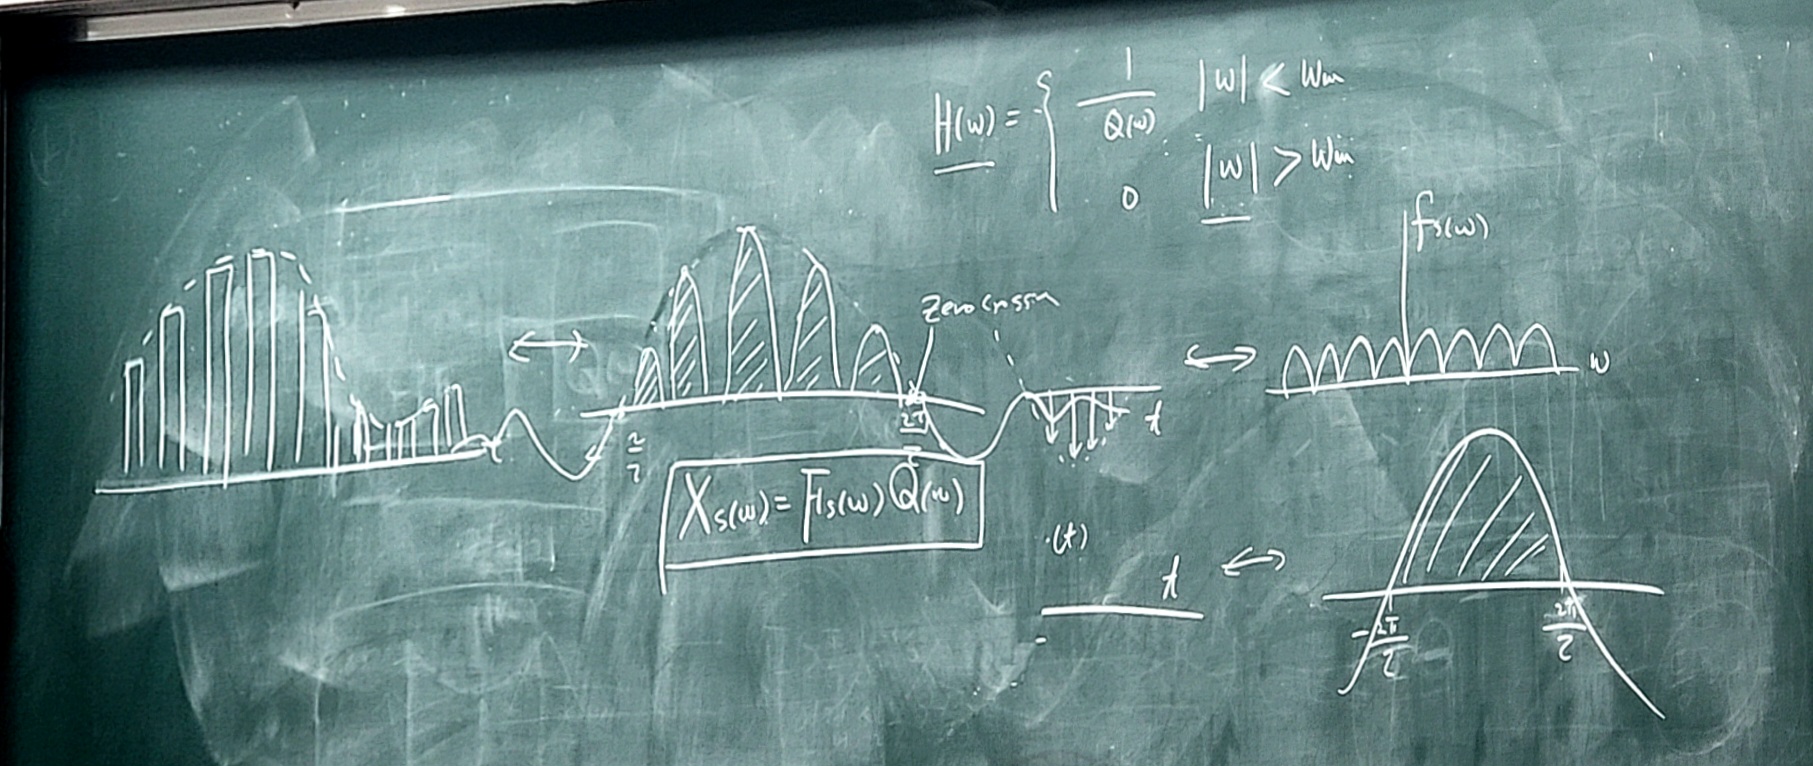 H(w) = { 1/Q(w) |w| < Wm
0 |w| > Wm
fs(w)
w
Zero crossin
t
2π/τ
Xs(w) = Fs(w) Q(w)
(t)
t
-2π/τ
2π/τ